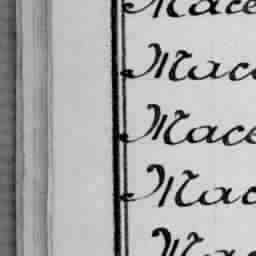 Mace
Mac
Mace
Mac
Ma